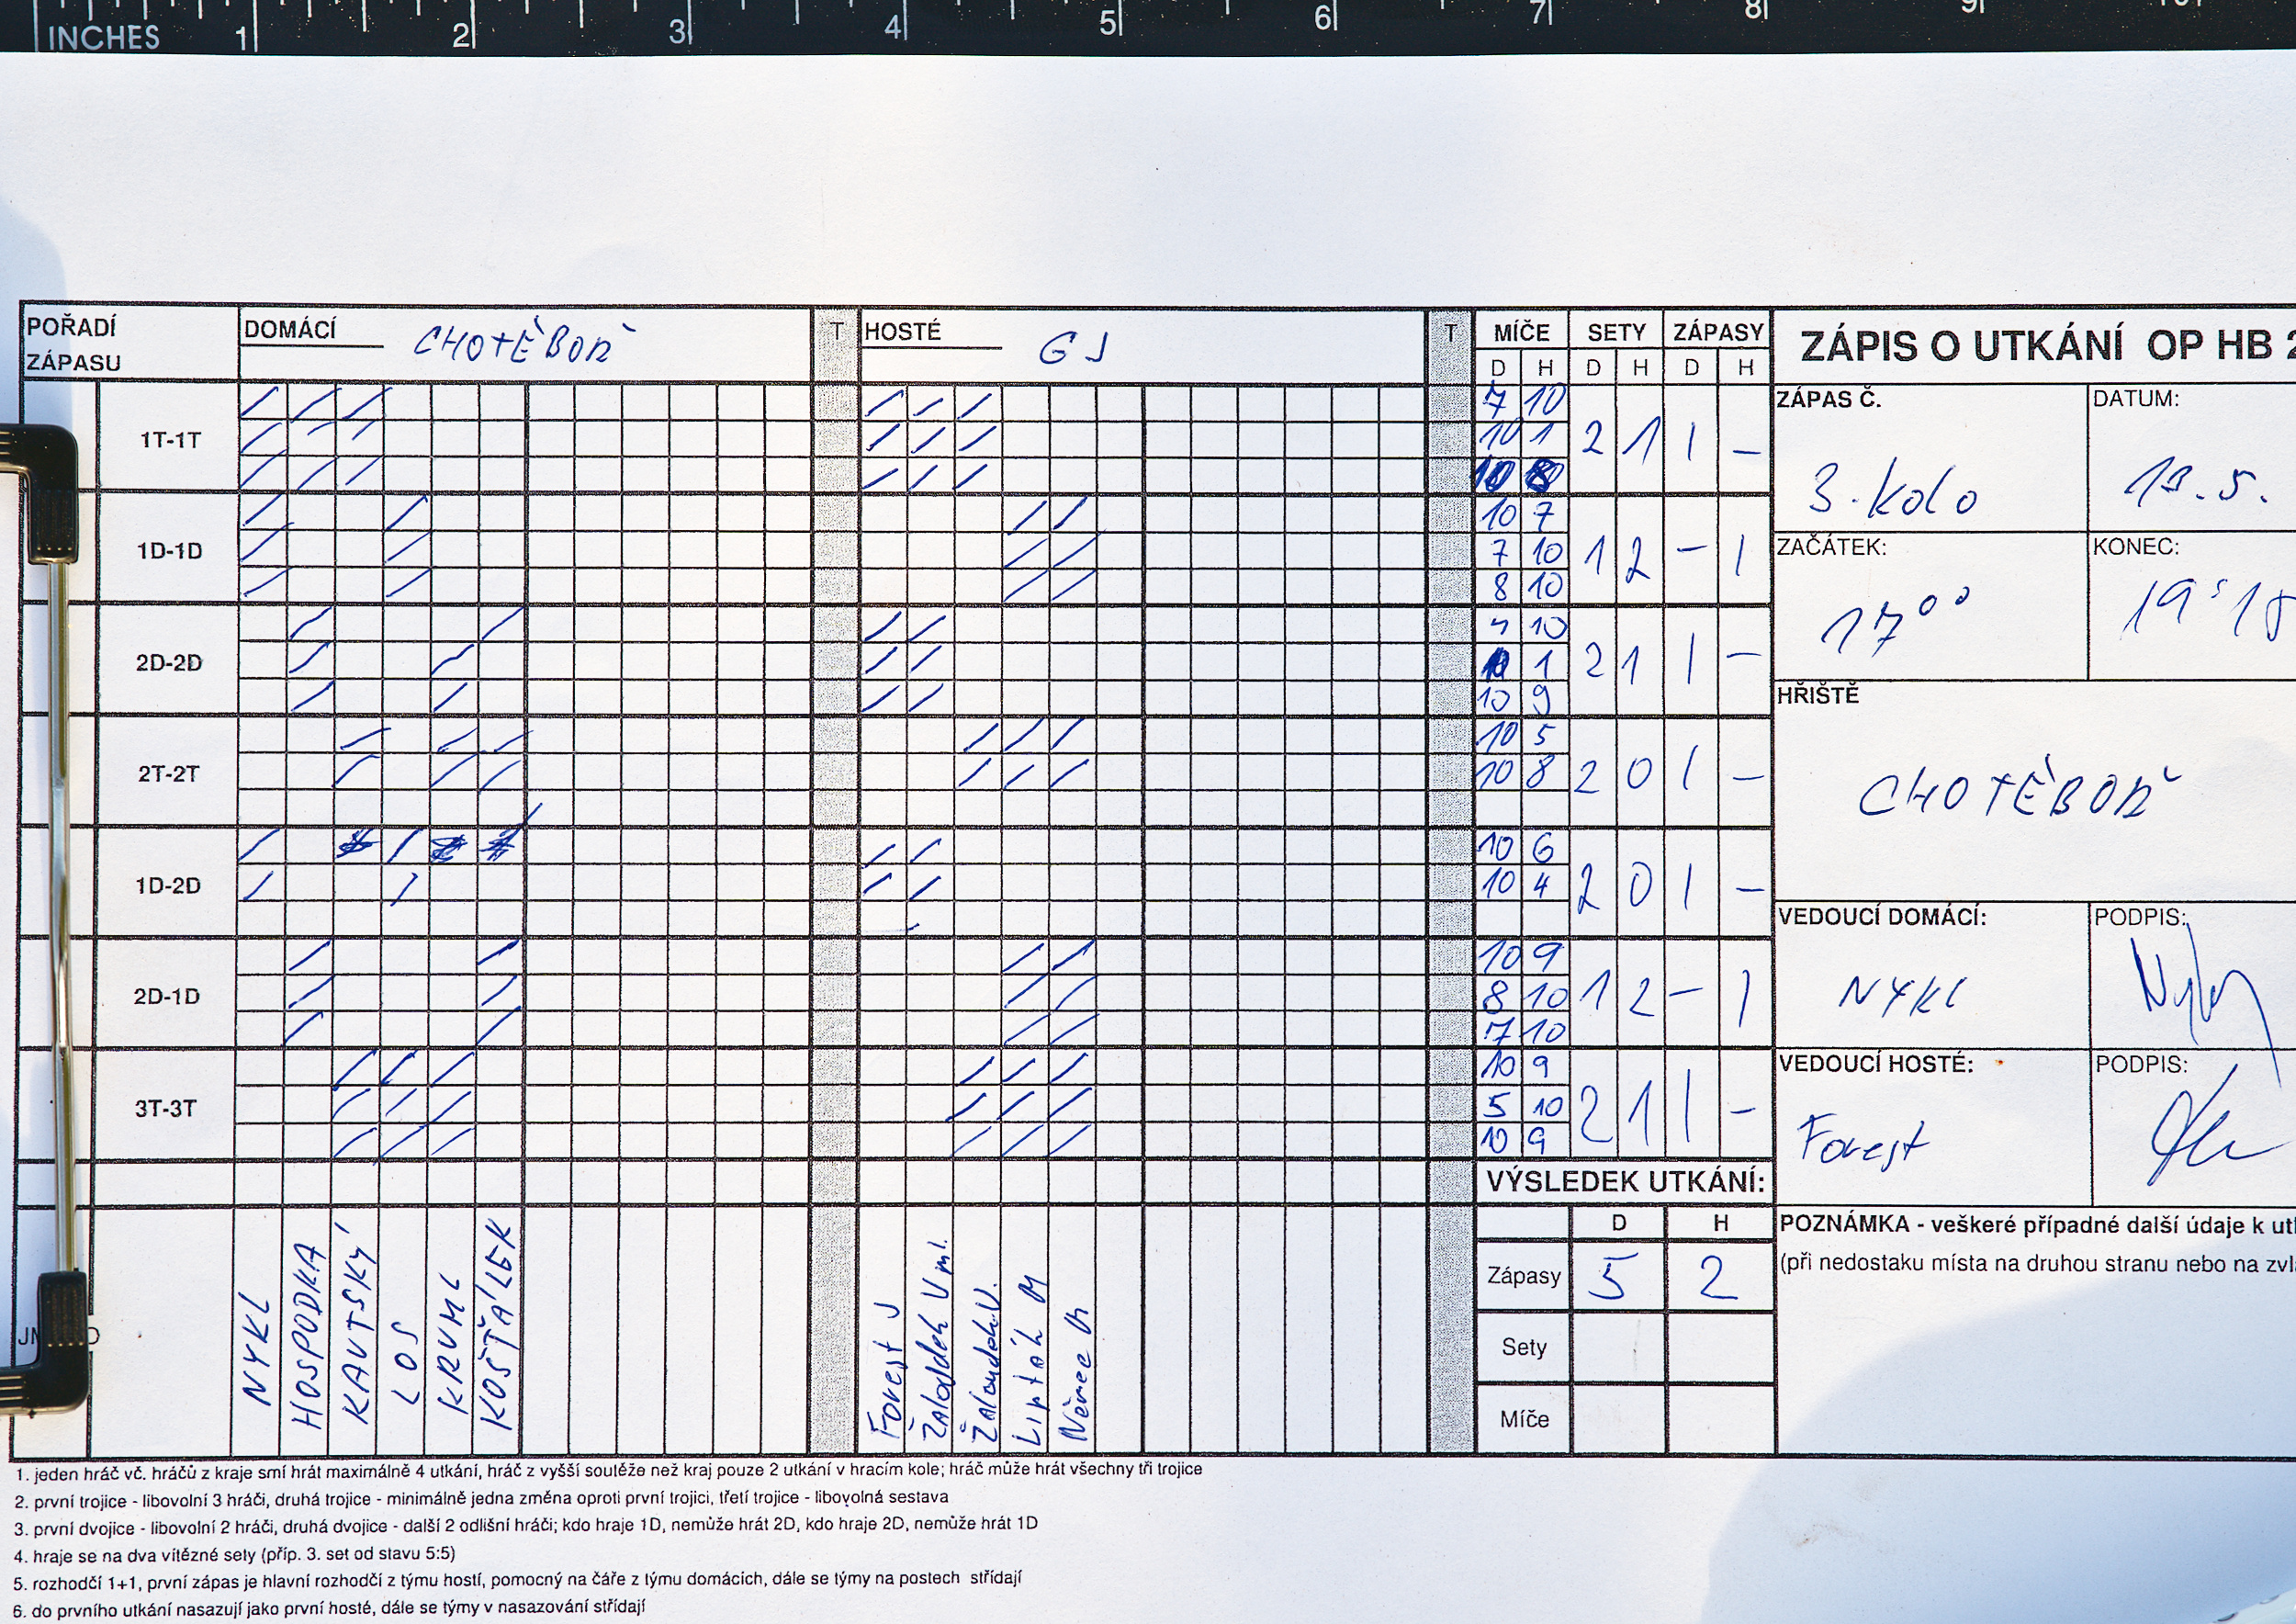 INCHES 1 2 3 4 5 6 7 8 9
POŘADÍ ZÁPASU DOMÁCÍ CHOTĚBOŘ T HOSTÉ GJ T MÍČE SETY ZÁPASY ZÁPIS O UTKÁNÍ OP HB 2
D H D H D H
ZÁPAS Č. DATUM:
3. kolo 19.5.
ZAČÁTEK: KONEC:
17°° 19:15
HŘIŠTĚ
CHOTĚBOŘ
VEDOUCÍ DOMÁCÍ: PODPIS:
NYKL
VEDOUCÍ HOSTÉ: PODPIS:
Forest
1T-1T 7 10 2 1 1 -
10 1
10 8
1D-1D 10 7 1 2 - 1
7 10
8 10
2D-2D 10 2 1 1 -
1
10 9
2T-2T 10 5 2 0 1 -
10 8
1D-2D 10 6 2 0 1 -
10 4
2D-1D 10 9 1 2 - 1
8 10
7 10
3T-3T 10 9 2 1 1 -
5 10
10 9
NYKL
HOSPODKA
KAUTSKÝ
LOS
KRUML
KOŠŤÁLEK
Forest J
Žaloudek V ml.
Žaloudek V.
Lipták M
Němec
VÝSLEDEK UTKÁNÍ:
D H
Zápasy 5 2
Sety
Míče
POZNÁMKA - veškeré případné další údaje k utk
(při nedostaku místa na druhou stranu nebo na zvl
1. jeden hráč vč. hráčů z kraje smí hrát maximálně 4 utkání, hráč z vyšší soutěže než kraj pouze 2 utkání v hracím kole; hráč může hrát všechny tři trojice
2. první trojice - libovolní 3 hráči, druhá trojice - minimálně jedna změna oproti první trojici, třetí trojice - libovolná sestava
3. první dvojice - libovolní 2 hráči, druhá dvojice - další 2 odlišní hráči; kdo hraje 1D, nemůže hrát 2D, kdo hraje 2D, nemůže hrát 1D
4. hraje se na dva vítězné sety (příp. 3. set od stavu 5:5)
5. rozhodčí 1+1, první zápas je hlavní rozhodčí z týmu hostí, pomocný na čáře z týmu domácích, dále se týmy na postech střídají
6. do prvního utkání nasazují jako první hosté, dále se týmy v nasazování střídají